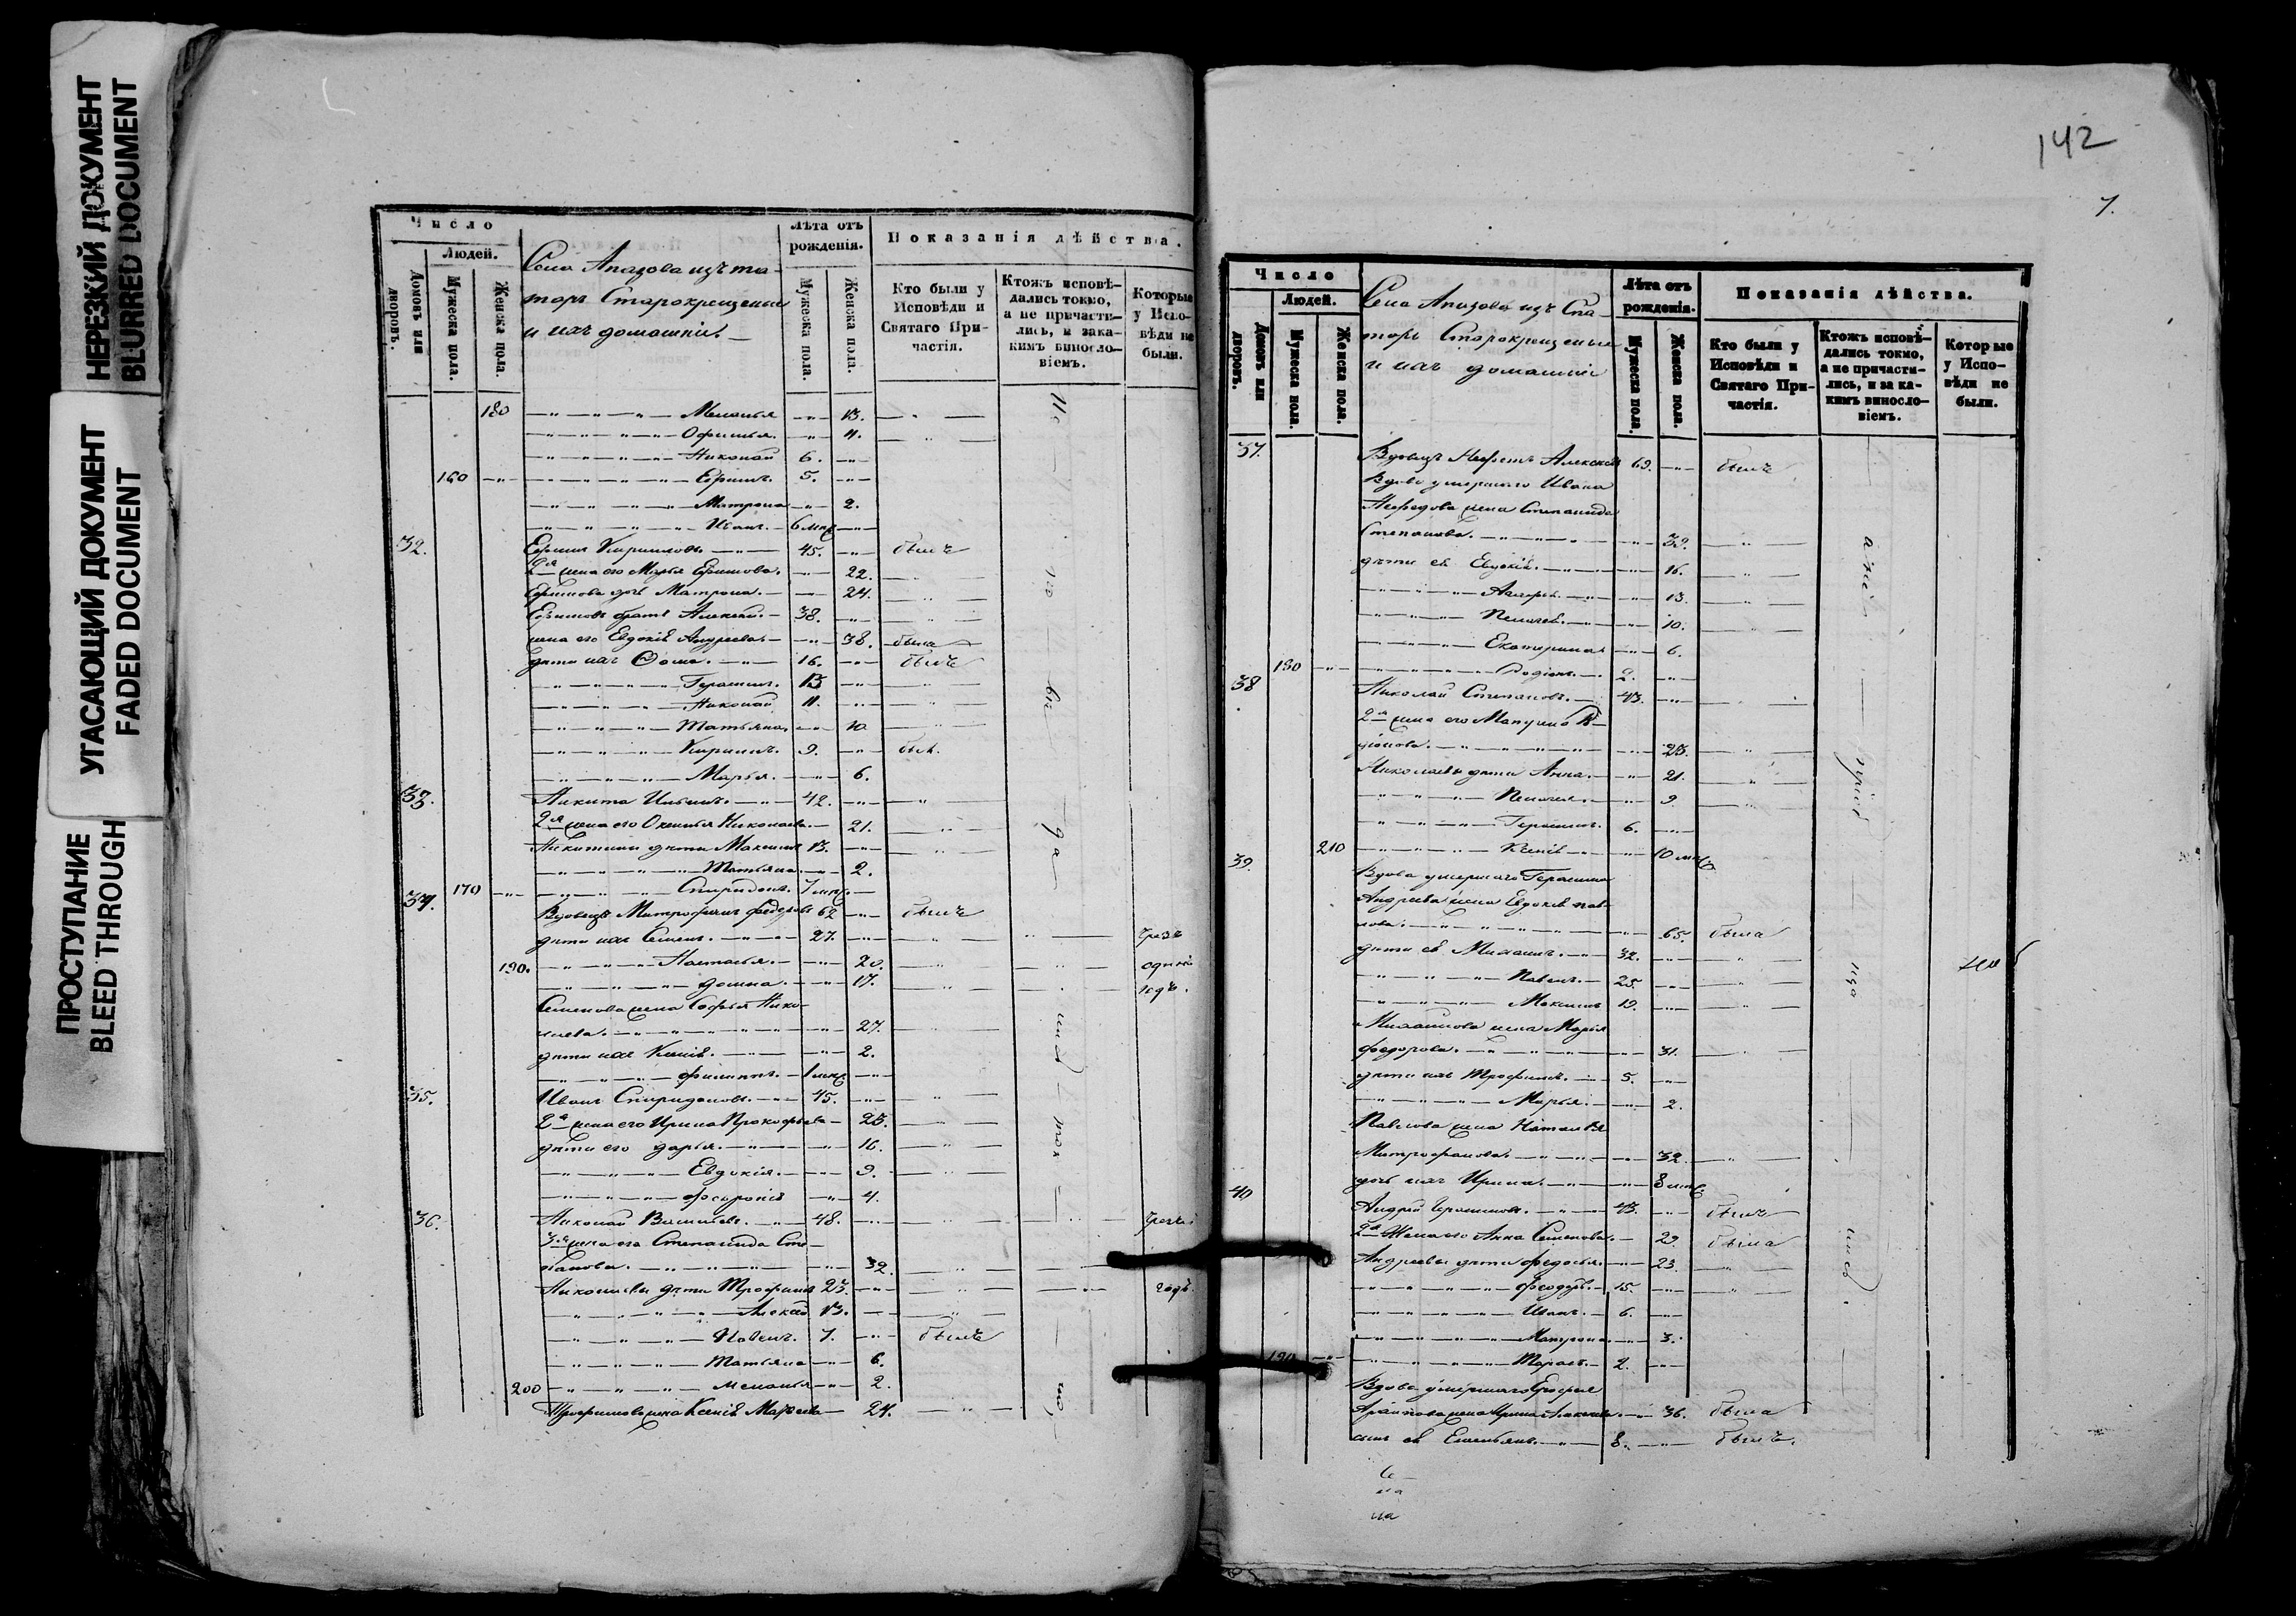 НЕРЕЗКИЙ ДОКУМЕНТ
BLURRED DOCUMENT
УГАСАЮЩИЙ ДОКУМЕНТ
FADED DOCUMENT
ПРОСТУПАНИЕ
BLEED THROUGH
Число
Людей.
Домовъ или дворовъ.
Мужеска пола.
Женска пола.
Села Апазова изъ та-
таръ Старокрещеные
и ихъ домашніе.
Лѣта отъ рожденія.
Мужеска пола.
Женска пола.
Показанія дѣйства.
Кто были у Исповѣди и Святаго При-частія.
Ктожъ исповѣ-дались токмо, а не причасти-лись, и зака-кимъ винословіемъ.
Которые у Испо-вѣди не были.
180 Меланья 13.
Офимья 11.
Николай 6.
160 Ефимъ 5.
Матрона 2.
Иванъ 6 мѣс
32. Ефимъ Кириловъ 45. былъ
2я жена его Марья Ефимова. 22.
Ефимова дочь Матрона 24.
Ефимовъ братъ Алексѣй 38.
жена его Евдокія Андреева 38. была
дѣти ихъ Фома. 16. былъ
Герасимъ 13
Николай 11.
Татьяна 10
Кирилъ 9. был.
Марья. 6.
33. Никита Ильинъ. 42.
2я жена его Николаева 21.
Никитины дѣти Максимъ 13.
Татьяна 2.
170 Спиридонъ 7 мѣс.
34. Вдовецъ Митрофанъ Федоровъ 62 былъ
дѣти ихъ Семенъ. 27. Чрезъ
190. Настасья 20. одинъ
Домна. 17. годъ.
Семенова жена Софья Нико-
лаева. 27.
дѣти ихъ Ксенія. 2.
Филиппъ. 1 мѣс
35. Иванъ Спиридоновъ. 45.
2я жена его Ирина Прокофьева 25.
дѣти его Дарья. 16.
Евдокія. 9.
Февронія 4.
36. Николай Васильевъ. 48.
3я жена его Степанида Сте-
панова. 32.
Николаевы дѣти Трофимъ 23. годъ.
Алексѣй 13.
Павелъ. 7. былъ
Татьяна 6.
200 Меланья 2.
Трофимова жена Ксенія 24.
142
7.
Число
Людей.
Домовъ или дворовъ.
Мужеска пола.
Женска пола.
Села Апазова изъ Ста-
таръ Старокрещеные
и ихъ домашніе
Лѣта отъ рожденія.
Мужеска пола.
Женска пола.
Показанія дѣйства.
Кто были у Исповѣди и Святаго При-частія.
Ктожъ исповѣ-дались токмо, а не причасти-лись, и за ка-кимъ винословіемъ.
Которые у Испо-вѣди не были.
37. Вдовецъ Алексѣевъ 69. былъ
Вдова умершаго Ивана
Нефедова жена Степанида
Степанова. 39.
дѣти ея Евдокія. 16.
13.
Пелагея. 10.
Екатерина 6.
180 Родіонъ 2.
38 Николай Степановъ. 43.
2я жена его
23.
Николаевы дѣти Анна. 21.
Пелагея. 9.
Герасимъ. 6.
210 Ксенія 10 мѣс
39. Вдова умершаго Герасима
Андреева жена Евдокія Пав-
лова. 65. была
дѣти ея Михаилъ. 32.
Павелъ 25.
Максимъ 19.
Михайлова жена Марья
Федорова. 31.
дѣти ихъ Трофимъ. 5.
Марья. 2.
Павлова жена Наталья
Митрофанова 32
дочь ихъ Ирина. 8 мѣс
40. Андрей Герасимовъ. 43. былъ
2я Жена его Анна Семенова. 29. была
Андреевы дѣти Федосья. 23.
Феодоръ. 15.
Иванъ. 6.
Матрона. 3.
190 Тарасъ. 2.
Вдова умершаго
жена Ирина 36. была
сынъ ея Емельянъ. 8. былъ.